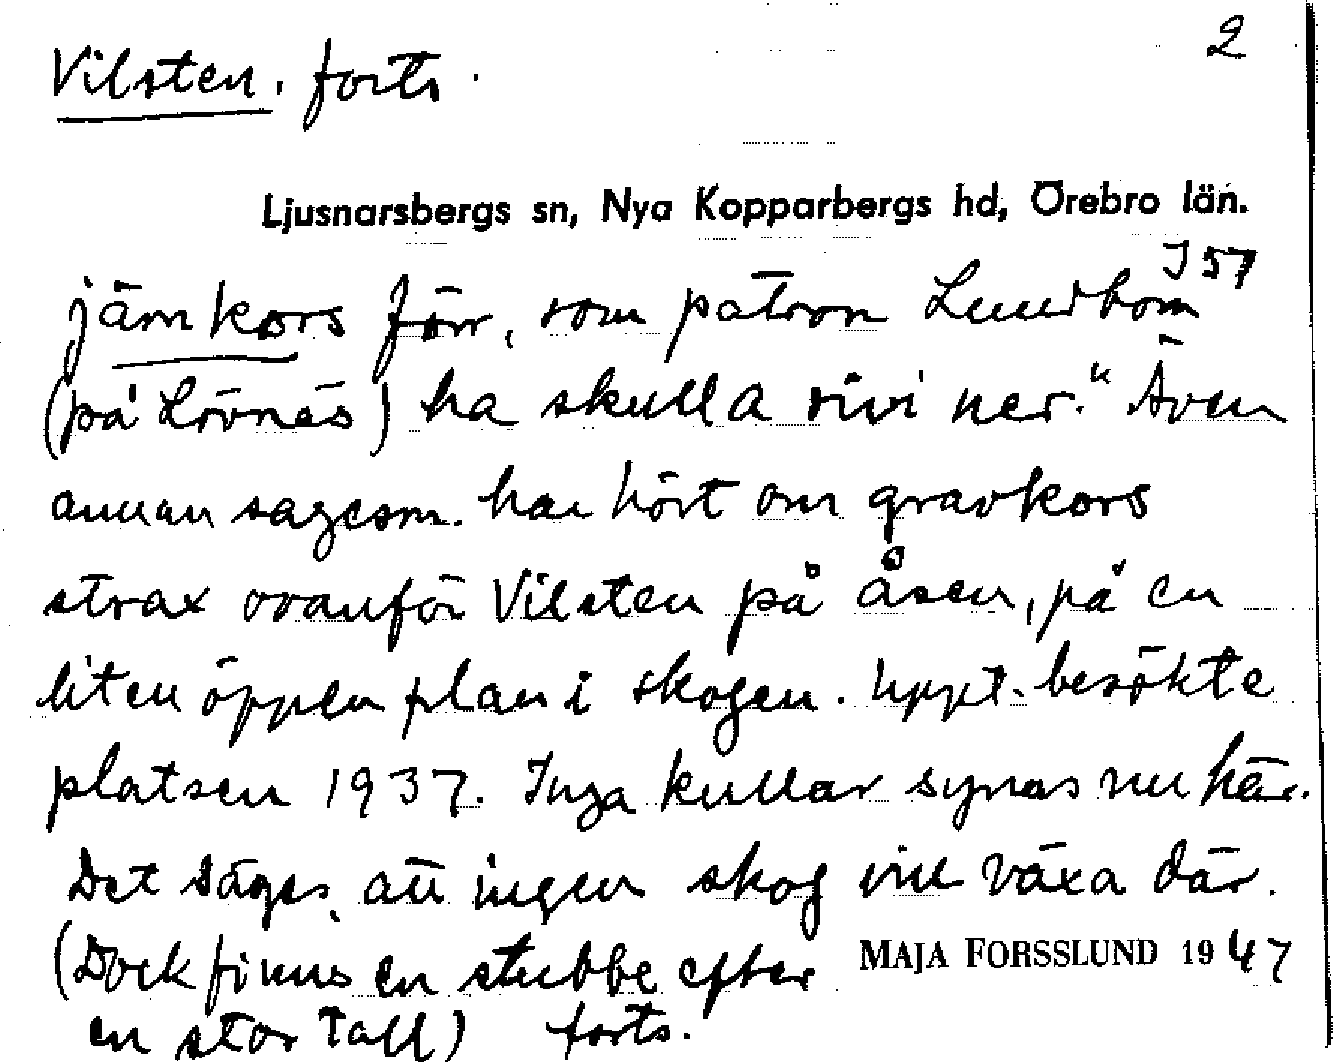 2
Vilsten. forts.
Ljusnarsbergs sn, Nya Kopparbergs hd, Örebro län.
J 57
järnkors förr, som patron Lundbom
(på Lövnäs) ha skulla rivi ner." Även
annan sagesm. har hört om gravkors
strax ovanför Vilsten på åsen, på en
liten öppen plan i skogen. Uppt. besökte
platsen 1937. Inga kullar synas nu här.
Det säges, att ingen skog vill växa där.
(Dock finns en stubbe efter
MAJA FORSSLUND 1947
en stor tall) forts.